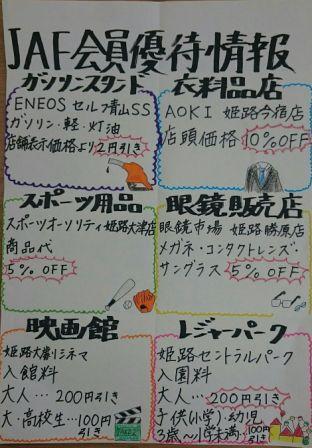 JAF会員優待情報
ガソリンスタンド
ENEOS セルフ青山SS
ガソリン・軽・灯油
店舗表示価格より2円引き
衣料品店
AOKI 姫路今宿店
店頭価格 10%OFF
スポーツ用品
スポーツオーソリティ姫路大津店
商品代
5% OFF
眼鏡販売店
眼鏡市場 姫路勝原店
メガネ・コンタクトレンズ・
サングラス 5%OFF
映画館
姫路大劇シネマ
入館料
大人…200円引き
大・高校生…100円引き
レジャーパーク
姫路セントラルパーク
入園料
大人…200円引き
子供(小学)・幼児
3歳〜就学未満…100円引き